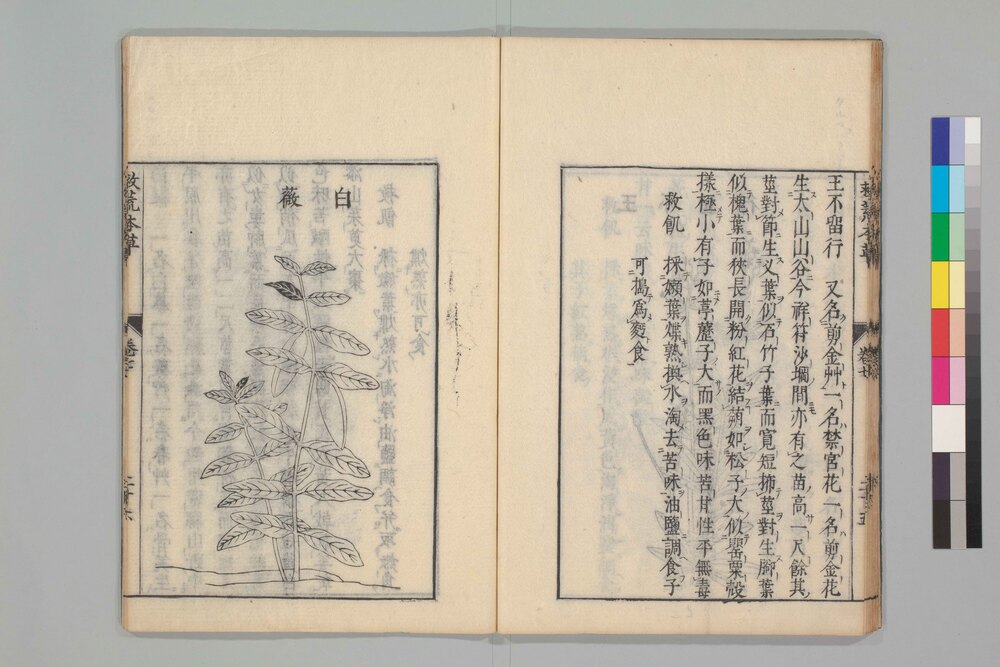 王不留行 又名剪金艸一名禁宮花一名剪金花
生太山山谷今祥符沙堈間亦有之苗高一尺餘其
莖對節生叉葉似石竹子葉而寬短抪莖對生脚葉
似槐葉而狹長開粉紅花結蒴如松子大似罌粟殼
樣極小有子如葶藶子大而黑色味苦甘性平無毒
救飢 採嫩葉煠熟換水淘去苦味油鹽調食子
可搗為麪食
白
薇
救荒本草